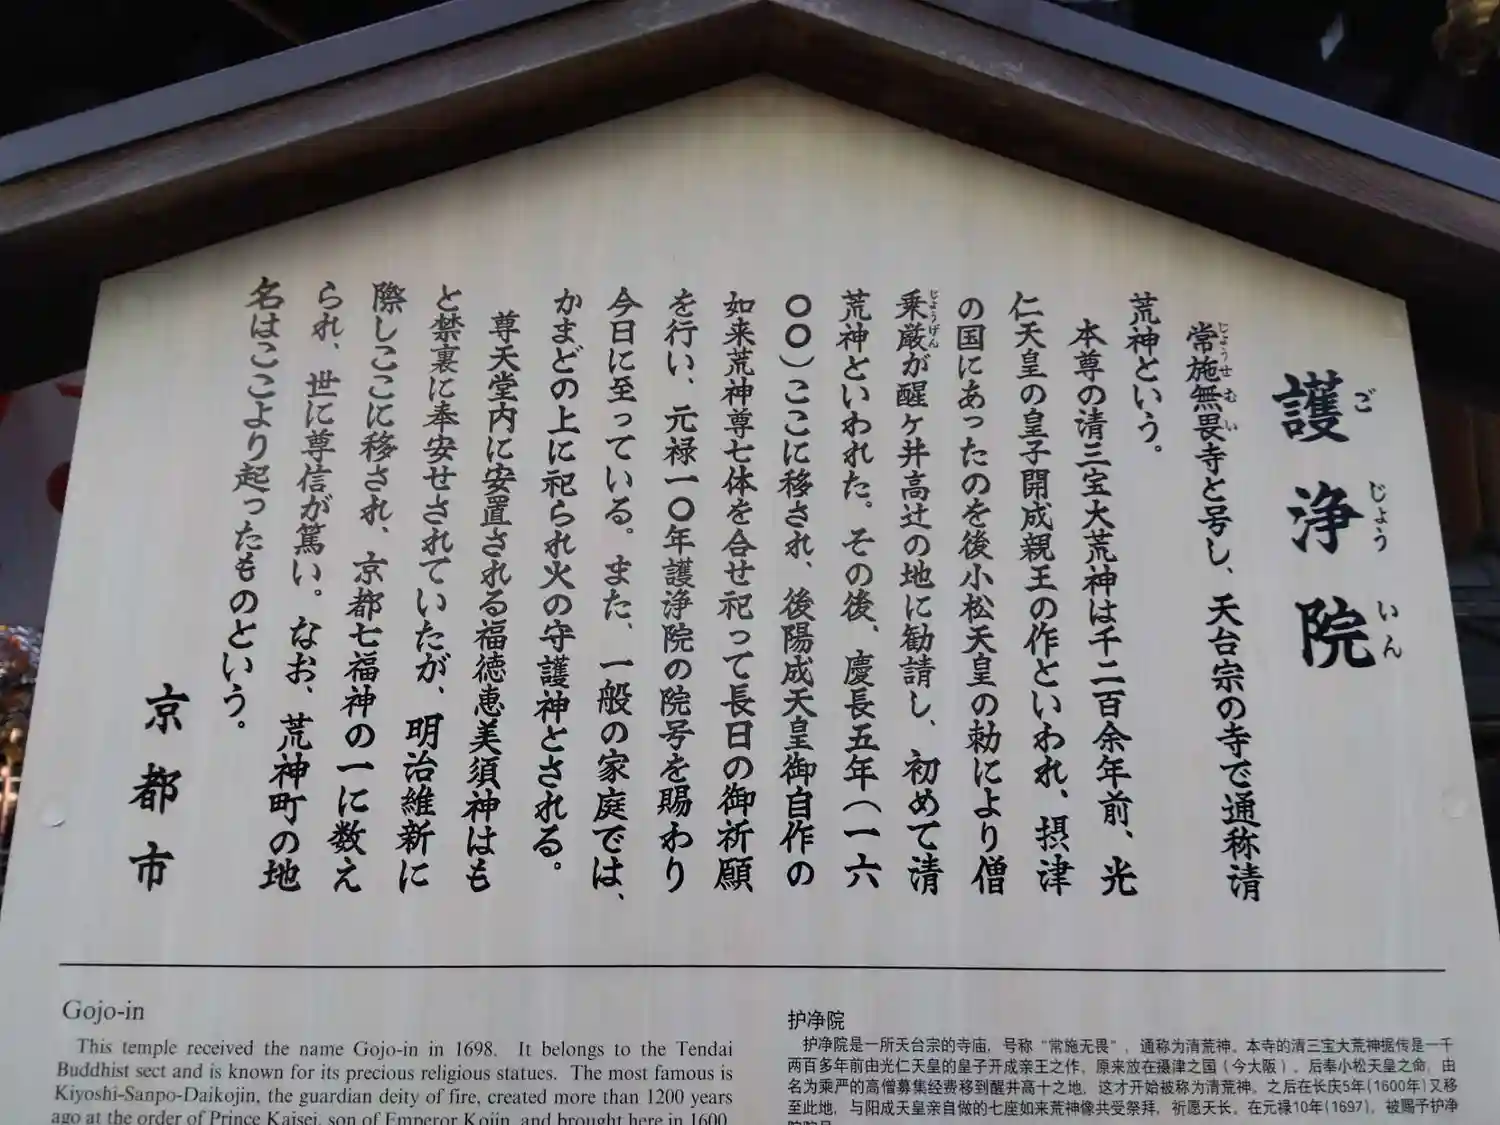 護浄院
ごじょういん
常施無畏寺と号し、天台宗の寺で通称清
じょうせむい
荒神という。
本尊の清三宝大荒神は千二百余年前、光
仁天皇の皇子開成親王の作といわれ、摂津
の国にあったのを後小松天皇の勅により僧
乗厳が醒ヶ井高辻の地に勧請し、初めて清
じょうげん
荒神といわれた。その後、慶長五年(一六
〇〇)ここに移され、後陽成天皇御自作の
如来荒神尊七体を合せ祀って長日の御祈願
を行い、元禄一〇年護浄院の院号を賜わり
今日に至っている。また、一般の家庭では、
かまどの上に祀られ火の守護神とされる。
尊天堂内に安置される福徳恵美須神はも
と禁裏に奉安せされていたが、明治維新に
際しここに移され、京都七福神の一に数え
られ、世に尊信が篤い。なお、荒神町の地
名はここより起ったものという。
京都市
Gojo-in
This temple received the name Gojo-in in 1698. It belongs to the Tendai
Buddhist sect and is known for its precious religious statues. The most famous is
Kiyoshi-Sanpo-Daikojin, the guardian deity of fire, created more than 1200 years
ago at the order of Prince Kaisei, son of Emperor Kojin, and brought here in 1600.
护净院
护净院是一所天台宗的寺庙，号称“常施无畏”，通称为清荒神。本寺的清三宝大荒神据传是一千
两百多年前由光仁天皇的皇子开成亲王之作，原来放在摄津之国（今大阪），后奉小松天皇之命，由
名为乘严的高僧募集经费移到醒井高十之地，这才开始被称为清荒神。之后在长庆5年(1600年)又移
至此地，与阳成天皇亲自做的七座如来荒神像共受祭拜，祈愿天长。在元禄10年(1697)，被赐予护净